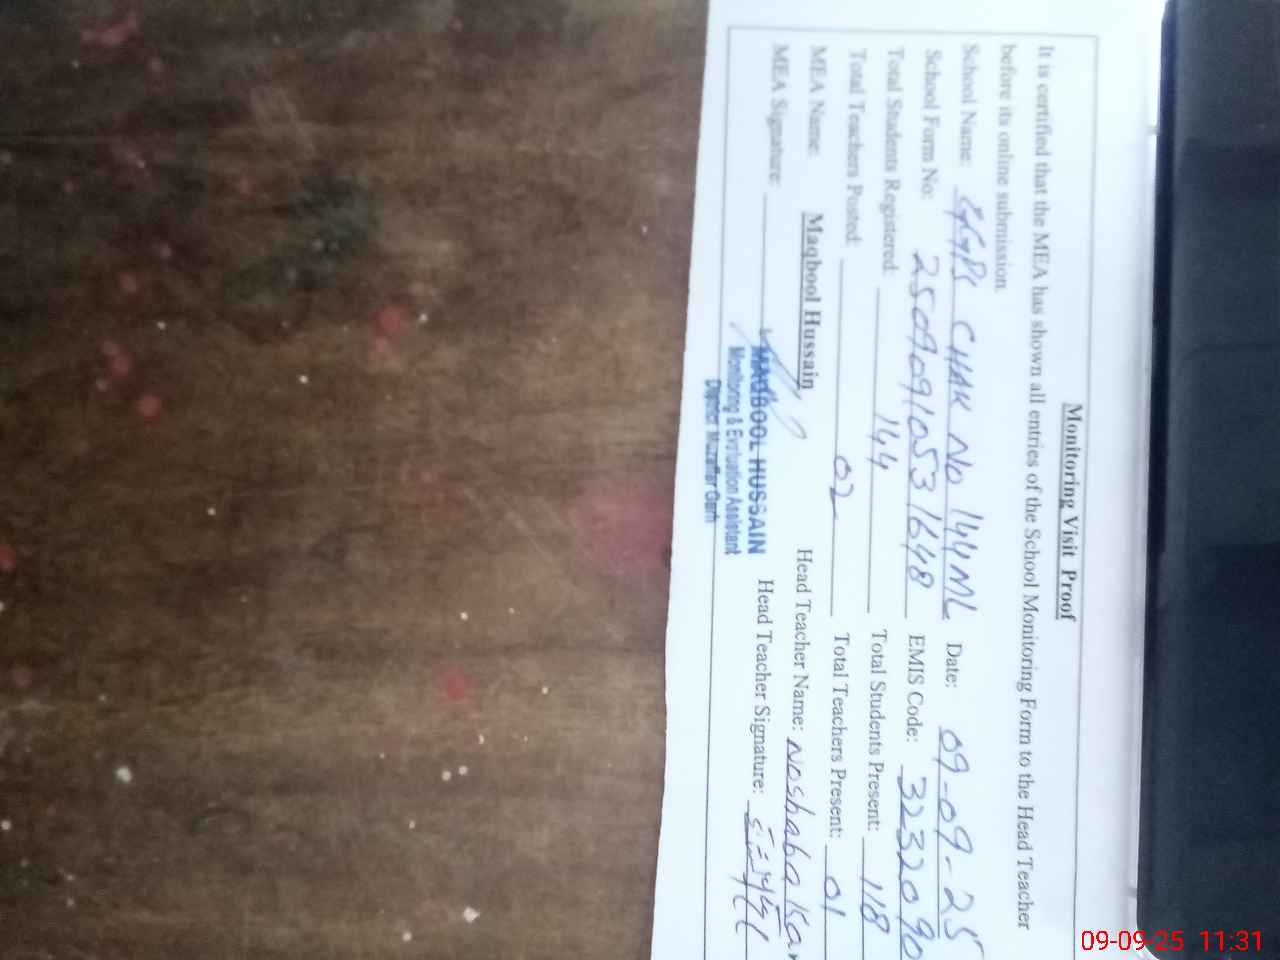 Monitoring Visit Proof
It is certified that the MEA has shown all entries of the School Monitoring Form to the Head Teacher
before its online submission.
School Name: GGPS CHAK No 144 ML Date: 09-09-25
School Form No: 2509091053 1648 EMIS Code: 3232090
Total Students Registered: 144 Total Students Present: 118
Total Teachers Posted: 02 Total Teachers Present: 01
MEA Name: Maqbool Hussain Head Teacher Name: Noshaba Ka
MEA Signature: Head Teacher Signature:
MAQBOOL HUSSAIN
Monitoring & Evaluation Assistant
District Muzaffar Garh
09-09-25 11:31